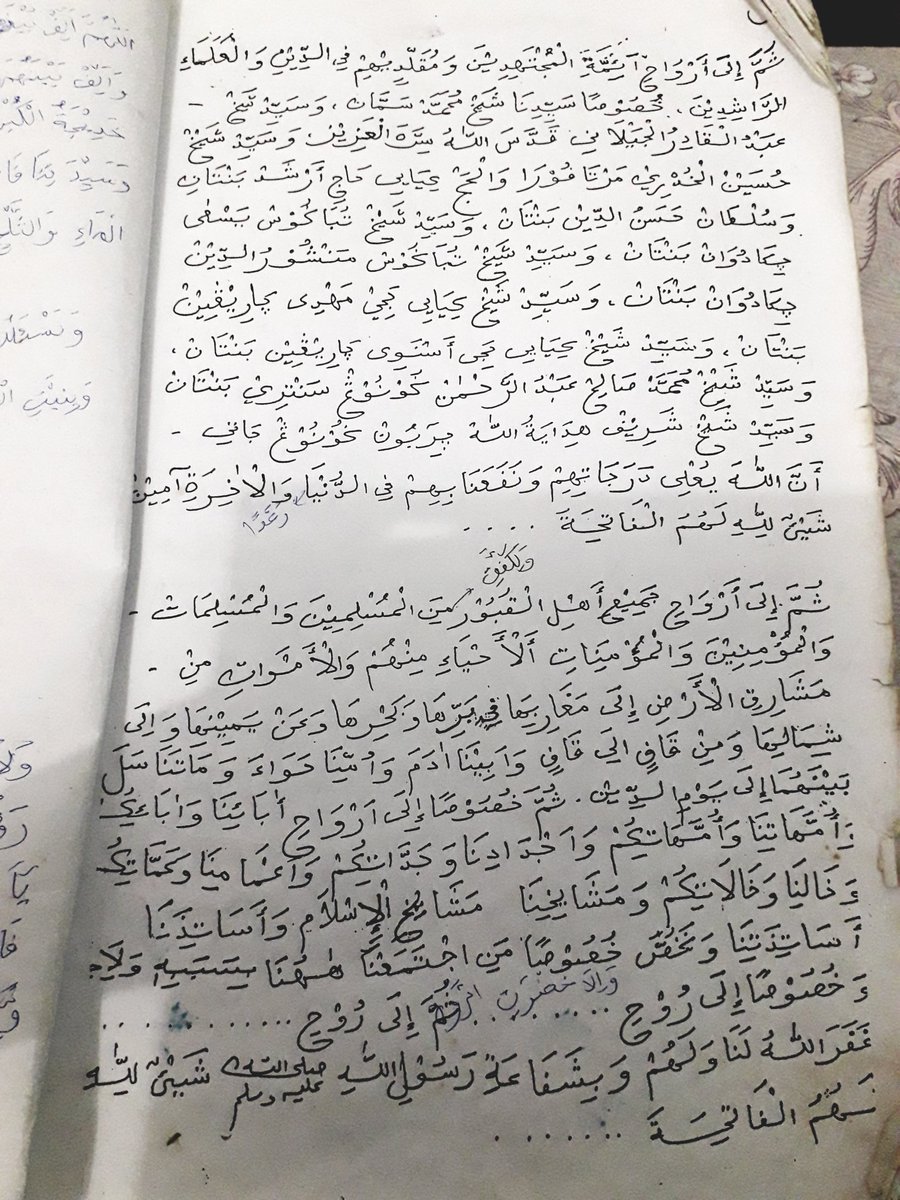 ثُمَّ إِلَى أَرْوَاحِ آئِمَّةِ الْمُجْتَهِدِيْنَ وَمُقَلِّدِيْهِمْ فِي الدِّيْنِ وَالْعُلَمَاءِ
الرَّاشِدِيْنَ، خُصُوْصًا سَيِّدِنَا شَيْخْ مُحَمَّدْ سَمَّانْ، وَسَيِّدْ شَيْخْ -
عَبْدُ الْقَادِرُ الْجَيْلَانِي قَدَّسَ اللّٰهُ سِرَّهُ الْعَزِيْزِ، وَسَيِّدْ شَيْخْ
حُسَيْنْ الْخُدْرِيْ مَرْتَافُوْرَا وَالْحَجْ كِيَاهِي حَاجْ أَرْشَدْ بَنْتَانِ
وَسُلْطَانْ حَسَنُ الدِّيْنِ بَنْتَانْ، وَسَيِّدْ شَيْخْ تُبَاكُوْسْ بَسْطَى
چِمَادُوَانْ بَنْتَانْ، وَسَيِّدْ شَيْخْ تُبَاكُوْسْ مَنْشُوْرُ الدِّيْنْ
چِمَادُوَانْ بَنْتَانْ، وَسَيِّدْ شَيْخْ كِيَاهِي كَجِيْ مَهْدِى چَارِيْڤِيْنْ
بَنْتَانْ، وَسَيِّدْ شَيْخْ كِيَاهِي كَجِى أَسْنَوِى چَارِيْڤِيْنْ بَنْتَانْ،
وَسَيِّدْ شَيْخْ مُحَمَّدْ صَالِحْ عَبْدُ الرَّحْمٰنْ كُوْنُوْڠْ سَنْتَرِيْ بَنْتَانْ
وَسَيِّدْ شَيْخْ شَرِيْفْ هِدَايَةُ اللّٰهْ چِرَبُوْنْ كُوْنُوْڠْ جَاتِي -
أَنَّ اللّٰهَ يُعْلِى دَرَجَاتِهِمْ وَنَفَعَنَا بِهِمْ فِي الدُّنْيَا وَالْاٰخِرَةِ آمِيْنْ
رَغَدًا
شَيْئٌ لِلّٰهِ لَهُمُ الْفَاتِحَةَ . . . . .
ثُمَّ إِلَى أَرْوَاحِ جَمِيْعِ أَهْلِ الْقُبُوْرِ مِنَ الْمُسْلِمِيْنَ وَالْمُسْلِمَاتْ -
وَالْمُؤْمِنِيْنَ وَالْمُؤْمِنَاتِ أَلْأَحْيَاءِ مِنْهُمْ وَالْأَمْوَاتِ مِنْ -
مَشَارِقِ الْأَرْضِ إِلَى مَغَارِبِهَا فِي بَرِّهَا وَبَحْرِهَا وَعَنْ يَمِيْنِهَا وَاِلَى
شِمَالِهَا وَمِنْ قَافٍ اِلَى قَافٍ وَاَبِيْنَا اٰدَمَ وَاُمِّنَا حَوَاءَ وَمَاتَنَاسَلَ
بَيْنَهُمَا إِلَى يَوْمِ الدِّيْنِ. ثُمَّ خُصُوْصًا إِلَى اَرْوَاحِ اٰبَائِنَا وَاٰبَائِكُمْ
وَأُمَّهَاتِنَا وَأُمَّهَاتِكُمْ وَاَجْدَادِنَا وَجَدَّاتِكُمْ وَاَعْمَامِنَا وَعَمَّاتِكُمْ
وَخَالِنَا وَخَالَاتِكُمْ وَمَشَايِخِنَا مَشَايِخِ الْإِسْلَامِ وَأَسَاتِذَنَا
أَسَاتِذَتِنَا وَنَخُصُّ خُصُوْصًا مَنِ اجْتَمَعْنَا هٰهُنَا بِسَبَبِهِ وَلِأَ
وَخُصُوْصًا إِلَى رُوْحِ . . . . . . . ثُمَّ إِلَى رُوْحِ . . . . . . . . . . .
غَفَرَ اللّٰهُ لَنَا وَلَهُمْ وَبِشَفَاعَةِ رَسُوْلِ اللّٰهِ صلى الله عليه وسلم شَيْئٌ لِلّٰهِ
لَهُمُ الْفَاتِحَةَ . . . . . . .